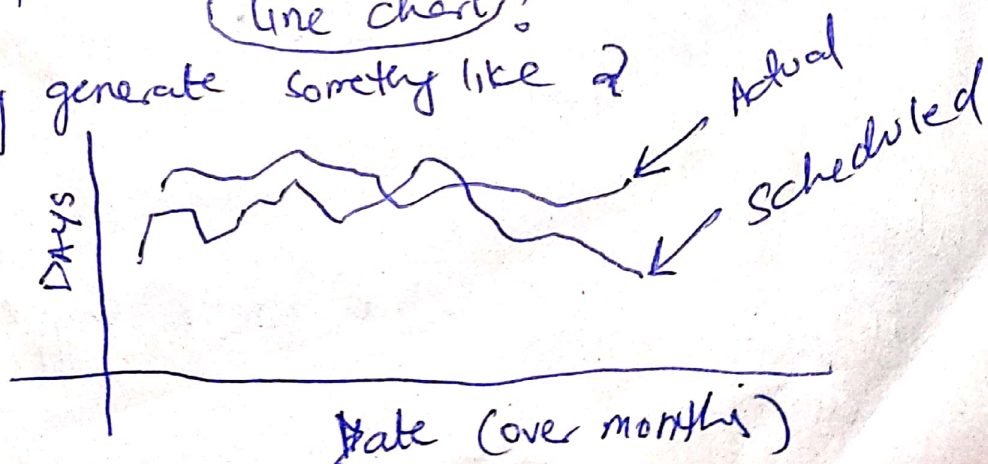 line chart.
generate somethg like ?
Actual
Scheduled
DAYS
Date (over months)